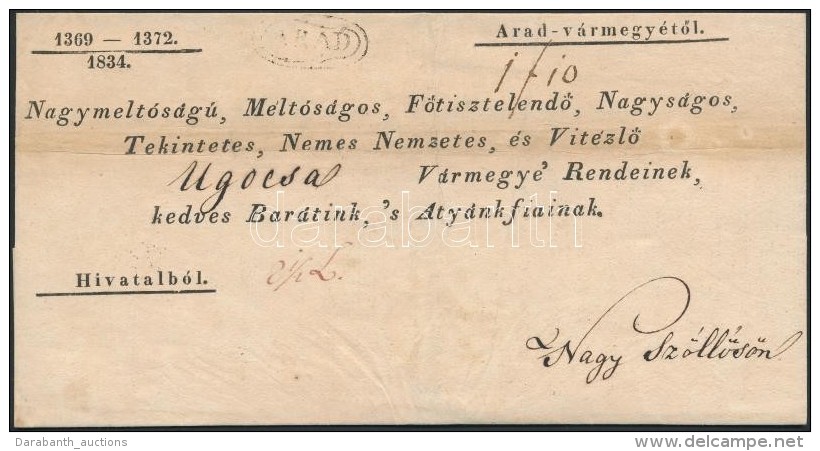 1369 — 1372.
1834.
ARAD
Arad-vármegyétől.
Nagymeltóságú, Méltóságos, Főtisztelendő, Nagyságos,
Tekintetes, Nemes Nemzetes, és Vitézlő
Ugocsa Vármegye' Rendeinek,
kedves Barátink, 's Atyánkfiainak.
darabanth
Hivatalból.
Nagy Szőllősön
Darabanth_auctions
delcampe.net